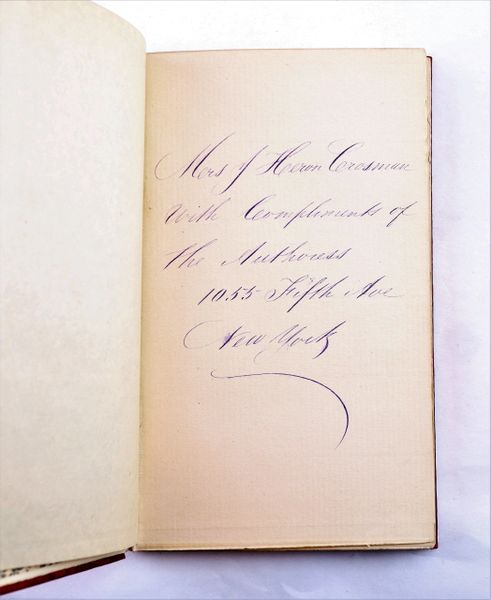 Mrs J Heron Crosman
With Compliments of
the Authoress
1055 Fifth Ave
New York